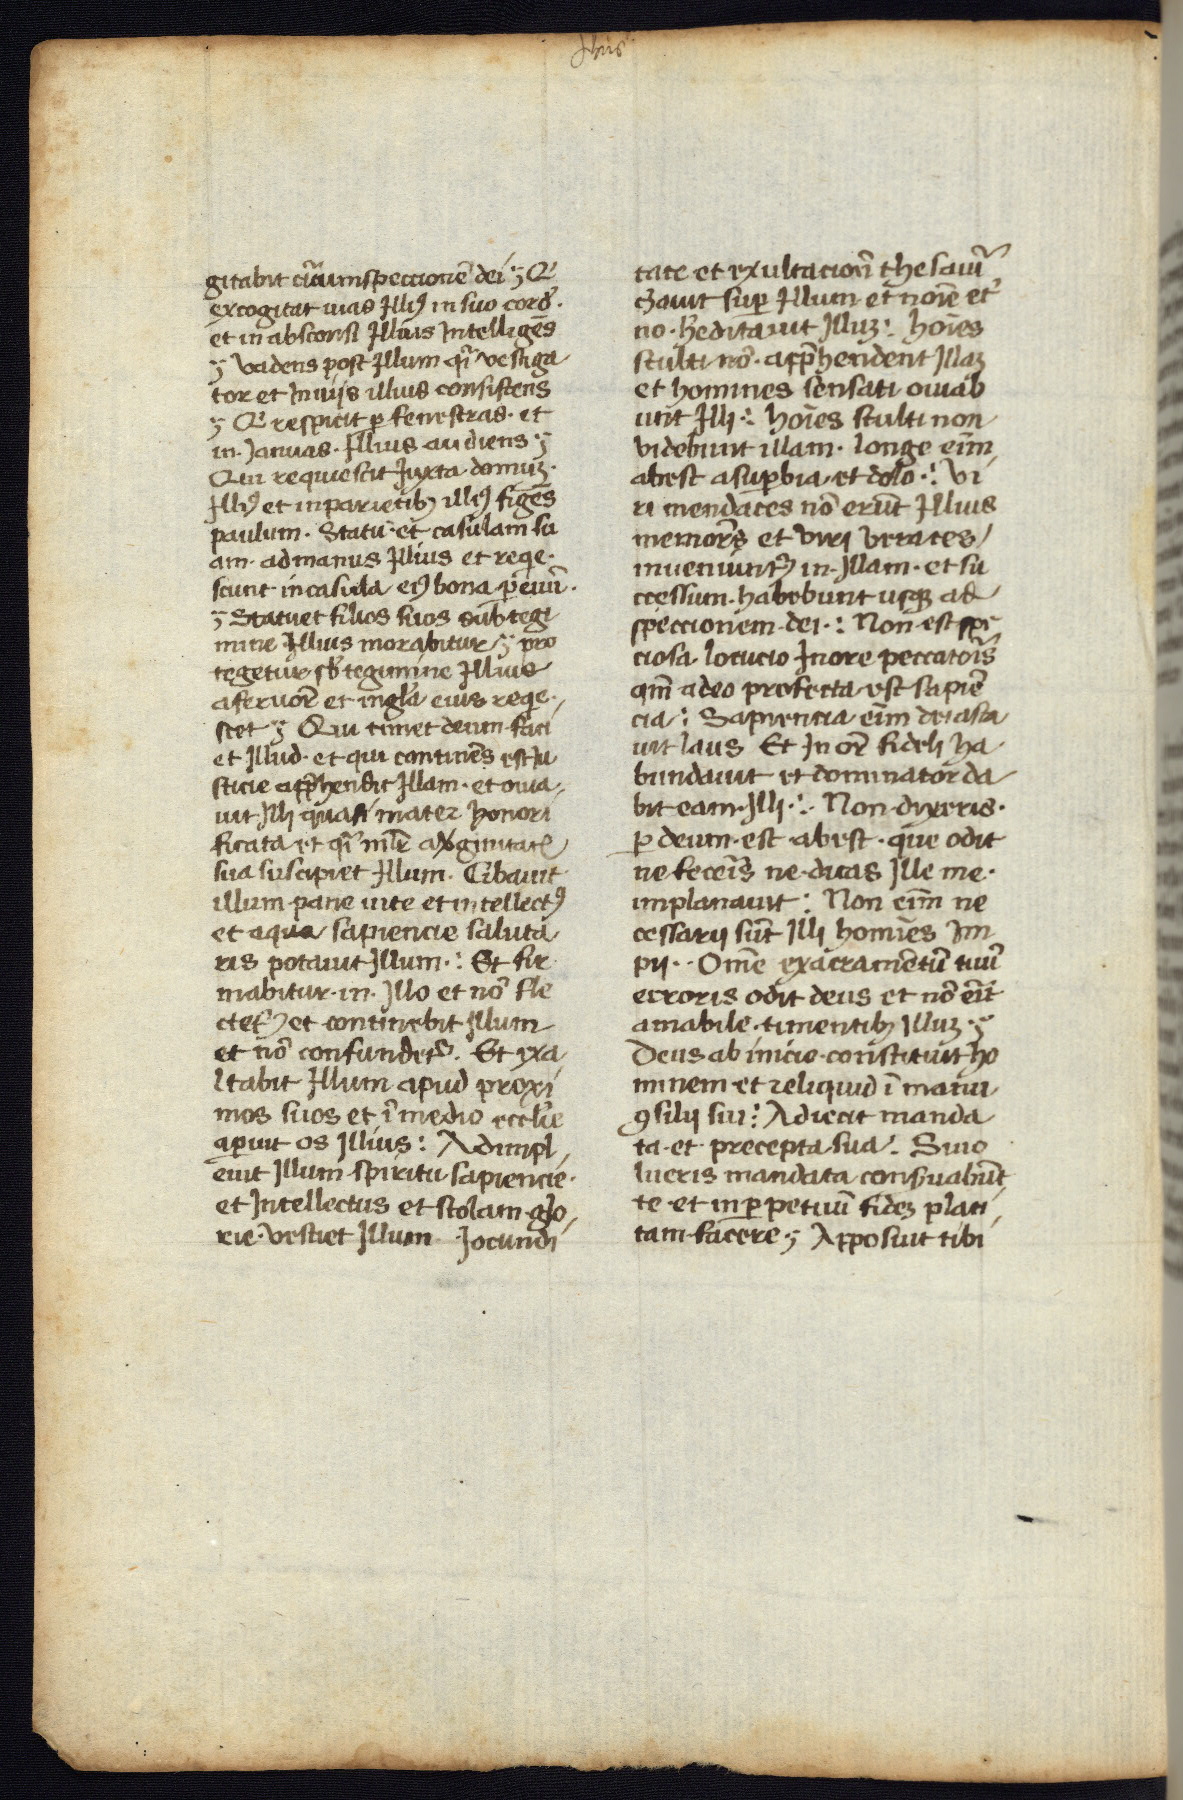 Jhus
gitabit cīrcumspeccionē dei ӡ Qͥ
excogitat uias Illiꝰ in suo cordͤ.
et in absconsi Illius Intelligēs
ӡ Vadens post Illum qͥ vestiga
tor et Inuijs illius consistens
ӡ Qͥ respicit ꝑ fenestras. et
in. Ianuas. Illius audiens. ӡ
Qui requiescit Iuxta domuӡ.
Illiꝰ et in parietibӡ illiꝰ figēs
paulum. Statuᷓ et casulam su
am. ad manus Illius et reqe.
scunt in casula eiꝰ bona ꝑ euū.
ӡ Statuet filios suos sub tegi
mine Illius morabitur ӡ pro
tegetur sb tegimine Illius
a feruorē et in glᷓa eius reqe.
scet ӡ Qui timet deum faci
et Illud. et qui continēs est Iu
sticie app̄hendit Illam. et ouia,
uit Illi quasi mater honori
ficata et qͥ mlē a v̓ginitatꝭ
sua suscipiet Illum. Cibauit
illum pane uite et intellectꝰ
et aqua sapiencie saluta
ris potauit Illum. : Et fir
mabitur. in. Illo et nō fle
ctetꝰ et continebit Illum
et nō confundetᷣ. Et exa
ltabit Illum apud proxi
mos suos et ī medio ecclīe
aꝑuit os Illius : Adimpl,
euit Illum spiritu sapiencie.
et Intellectus et stolam glo,
rie. Vestiet Illum Iocundi
tate et exultacionē thesaurͥ
ӡauit suꝑ Illum et noīe etͬ
no. heditauit Illuӡ : hoīes
stulti nō. app̄hendent Illaӡ
et homines sensati ouiab
unt Illi : hoīes stulti non
videbunt illam. longe eīm,
abest a suꝑbia et dolo. : Vi
ri mendaces nō erūt Illius
memorēs et Viri veraces,
inueniuntᷣ in. Illam. et su
ccessum. habebunt usqꝫ ad
speccionem dei. : Non est spe
ciosa. locucio In ore peccatorīs
qm̄ a deo profecta est sapiē
cia : Sapiencia eīm dei asta
uit laus Et In orē fideli ha
bundauit et dominator da
bit eam. Illi. : Non dixeris.
ꝑ deum. est. abest. que odit
ne fecerīs ne dicas Ille me.
implanauit : Non eīm ne
cessarij sūt Illi homīes Im
pij. Omē exacramētū tuū
erroris odit deus et nō erīt
amabile. timentibӡ Illuӡ. ӡ
Deus ab inicio. constituit ho
minem et reliquid ī manu
ꝯsilij sui : Adiecit manda
ta. et. precepta. sua. : Si uo
lueris mandata conẜuabūt
te. et in ꝑpetuū fideӡ placi
tam. facere. ӡ Apposuit tibi